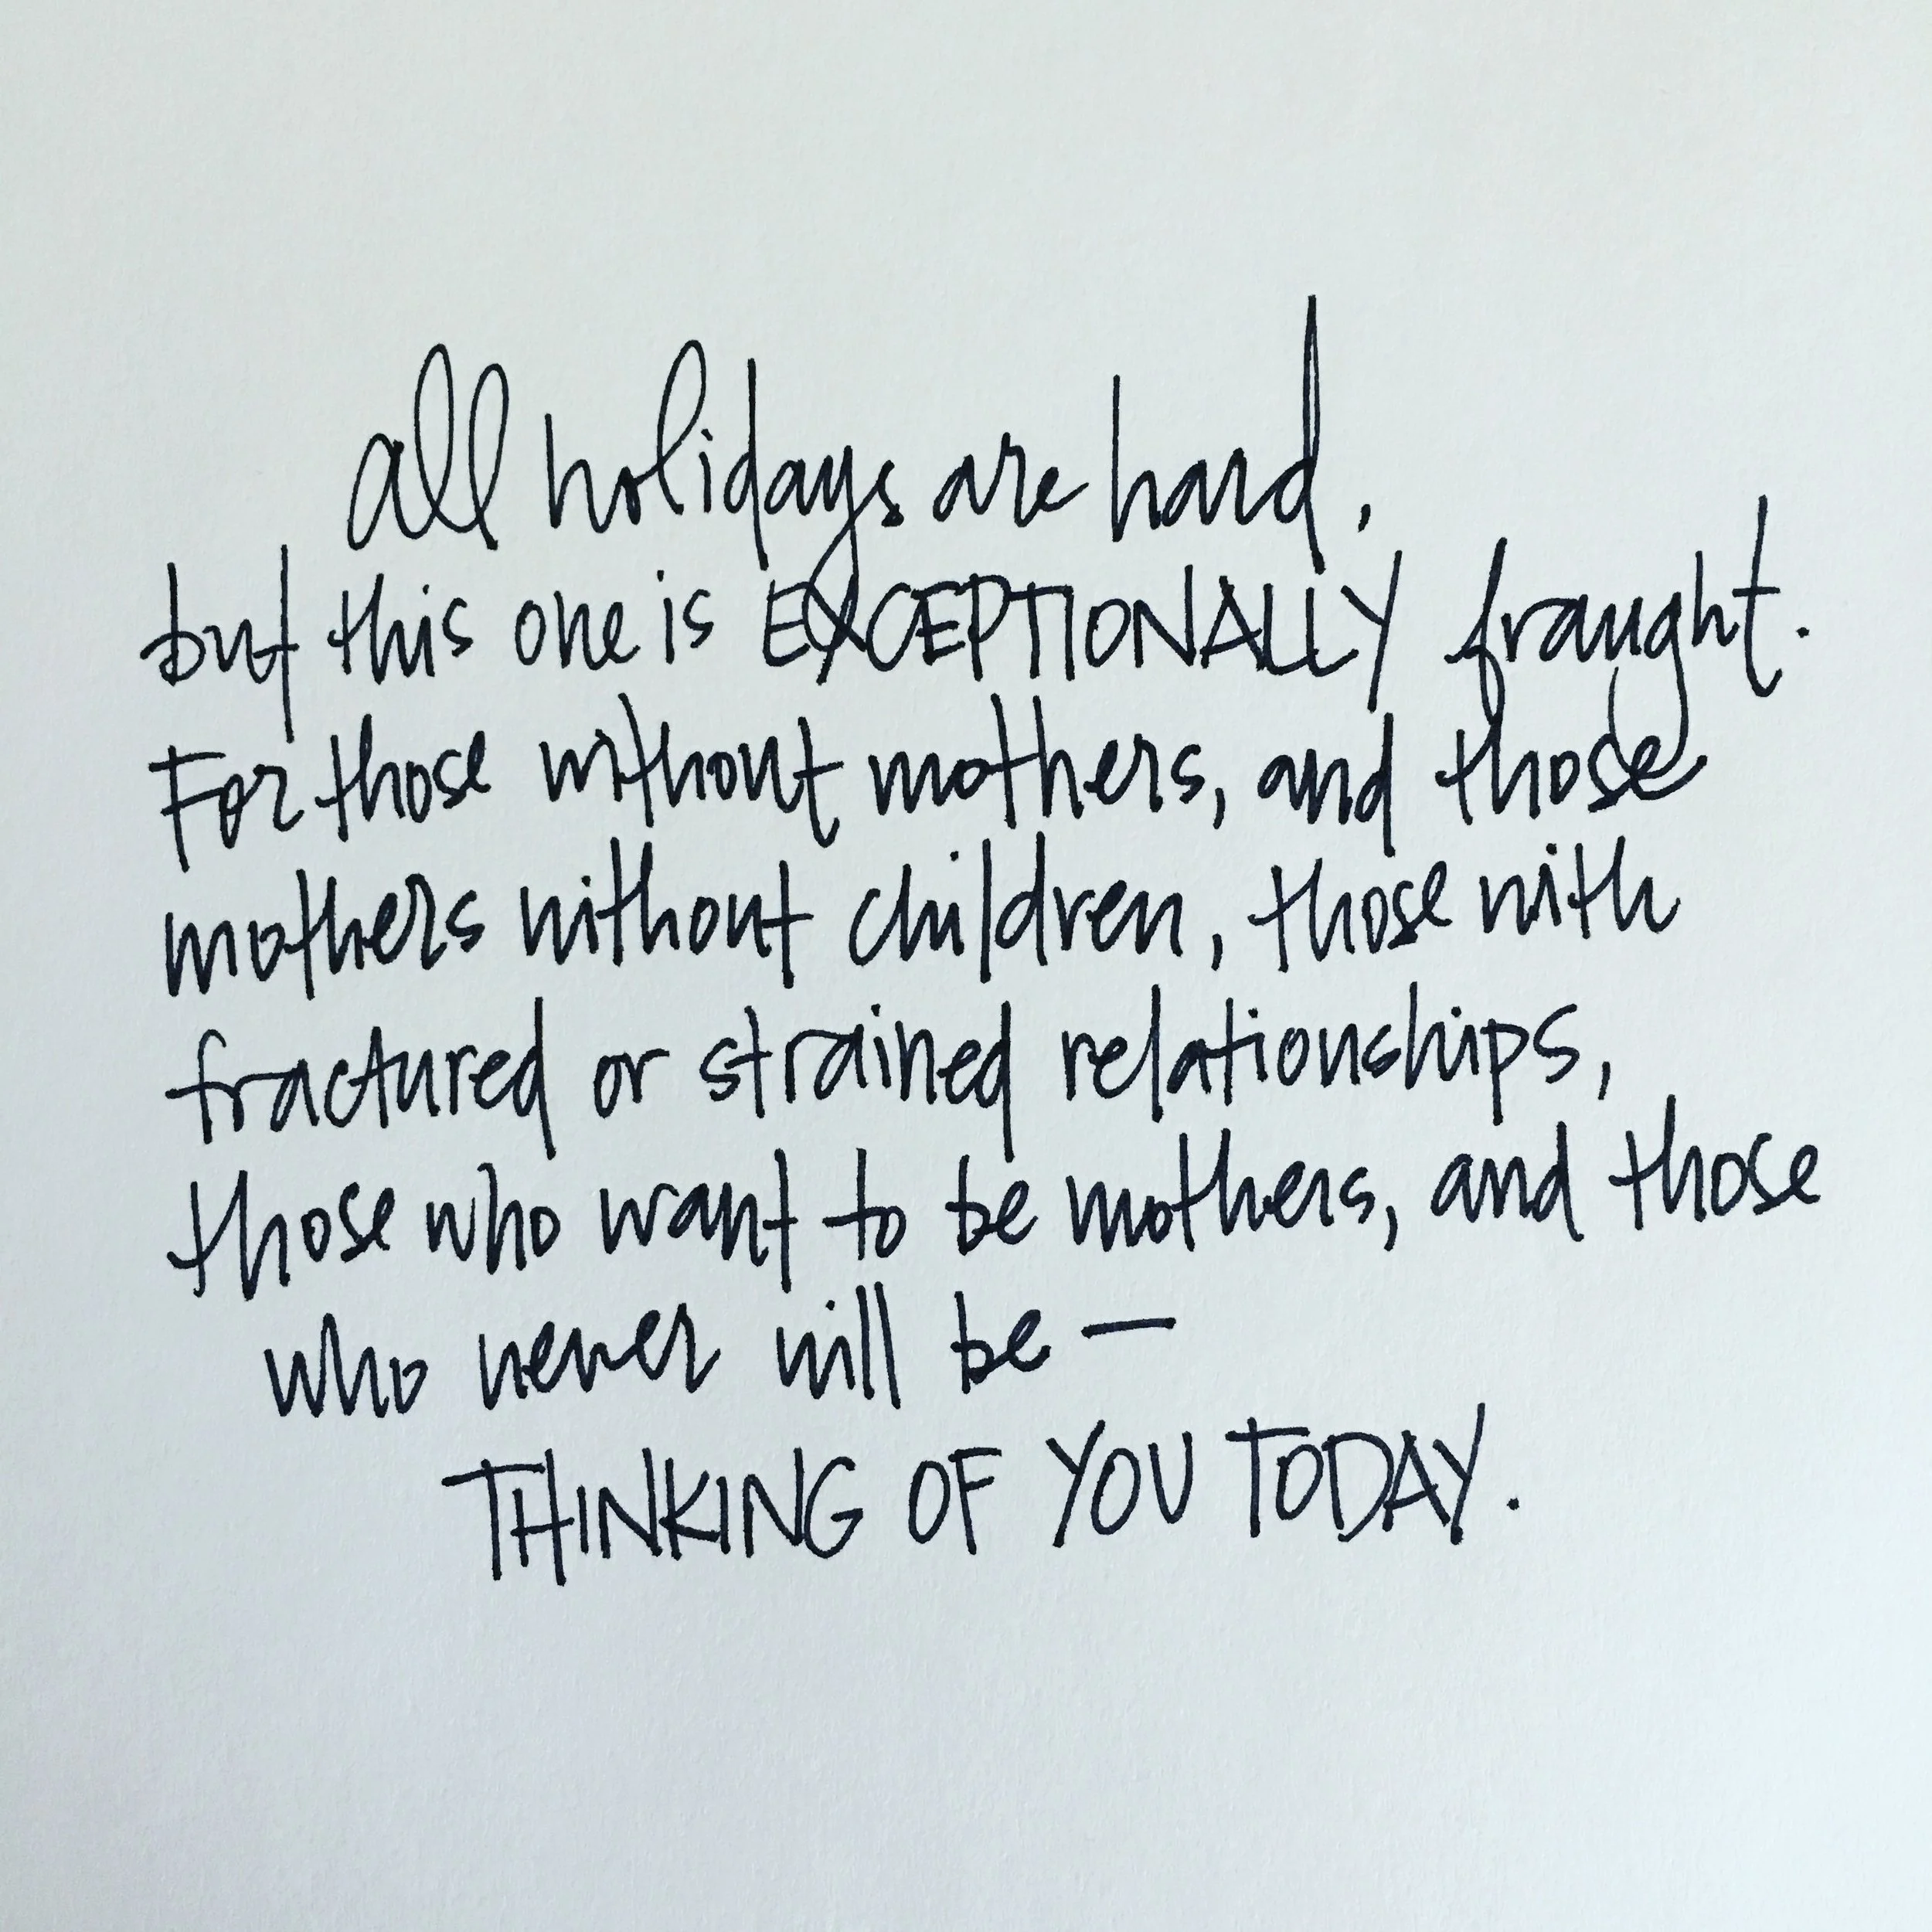 all holidays are hard,
but this one is EXCEPTIONALLY fraught.
For those without mothers, and those
mothers without children, those with
fractured or strained relationships,
those who want to be mothers, and those
who never will be —
THINKING OF YOU TODAY.